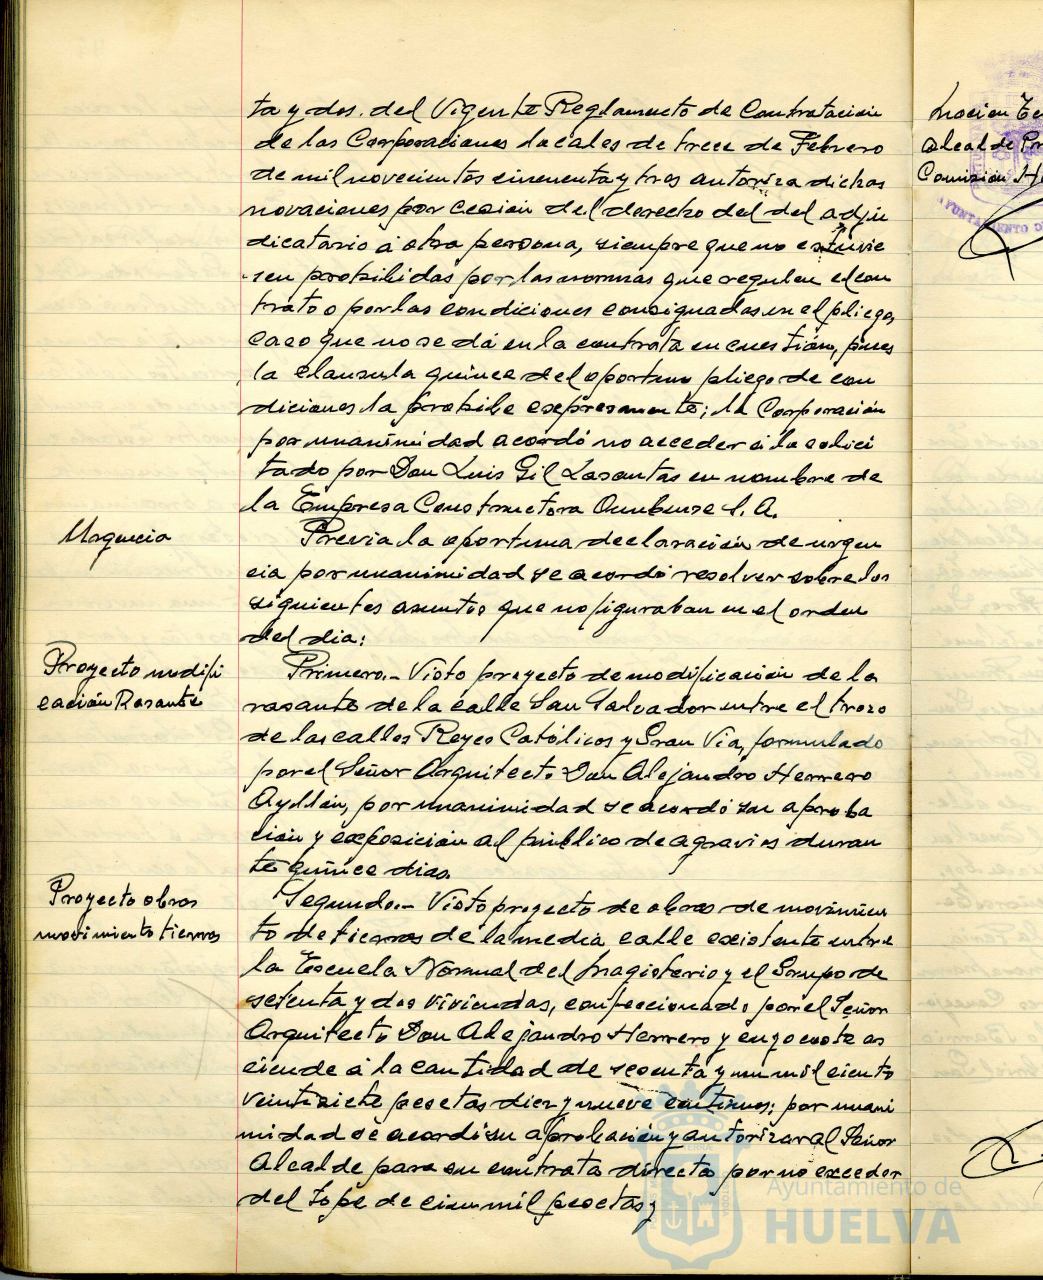 ta y dos del Vigente Reglamento de Contratacion
de las Corporaciones locales de trece de Febrero
de mil novecientos cincuenta y tres autoriza dichas
novaciones por cesion del derecho del del adju
dicatario á otra persona, siempre que no estuvie
sen prohibidas por las normas que regulen el con
trato o por las condiciones consignadas en el pliego,
caso que no se dá en la contrata en cuestión, pues
la clausula quince del oportuno pliego de con
diciones la prohibe expresamente; la Corporación
por unanimidad acordó no acceder á lo solici
tado por Don Luis Gil Lasantas en nombre de
la Empresa Constructora Onubense S. A.
Urgencia
Previa la oportuna declaración de urgen
cia por unanimidad se acordó resolver sobre los
siguientes asuntos que no figuraban en el orden
del dia:
Proyecto modifi
cación Rasante
Primero.- Visto proyecto de modificación de la
rasante de la calle San Salvador entre el trozo
de las calles Reyes Católicos y Gran Via, formulado
por el Señor Arquitecto Don Alejandro Herrero
Ayllón, por unanimidad se acordó su aproba
ción y exposición al público de agravios duran
te quince dias.
Proyecto obras
movimiento tierras
Segundo.- Visto proyecto de obras de movimien
to de tierras de la media calle existente entre
la Escuela Normal del Magisterio y el Grupo de
setenta y dos viviendas, confeccionado por el Señor
Arquitecto Don Alejandro Herrero y cuyo coste as
ciende á la cantidad de sesenta y un mil ciento
veintisiete pesetas diez y nueve centimos; por unani
midad se acordó su aprobación y autorizar al Señor
Alcalde para su contrata directa por no exceder
del tope de cien mil pesetas y
Moción
Alcalde
Comisión
AYUNTAMIENTO
Ayuntamiento de
HUELVA